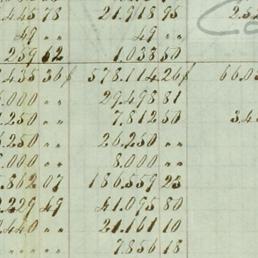 4.45 78 21.918 95 2.52
49 „ 49 „
259 62 1.033 50
.435 36 578.114 26 66.0
6.000 „ 29.498 81
.250 „ 7.812 50 34
6.250 „ 26.250 „
.000 „ 8.000 „
5.862 07 186.559 23
2.229 49 41.095 80
.440 „ 21.161 10
„ „ 7.856 18